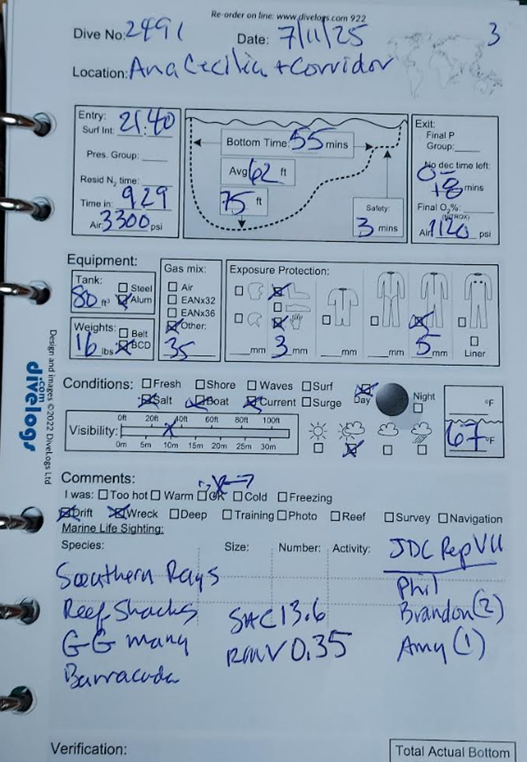 Re-order on line: www.divelogs.com 922
Dive No: 2491 Date: 7/11/25 3
Location: Ana Cecilia + Corridor
Entry:
Surf Int: 21:40
Pres. Group:
Resid N2 time:
Time in: 929
Air 3300 psi
Bottom Time: 55 mins
Avg 62 ft
75 ft
Safety:
3 mins
Exit:
Final P
Group:
No dec time left:
+8 mins
Final O2%:
(NITROX)
Air 1120 psi
Equipment:
Tank:
80 ft3 Steel Alum
Weights:
16 lbs Belt BCD
Gas mix:
Air
EANx32
EANx36
Other:
35
Exposure Protection:
mm 3 mm mm mm 5 mm Liner
Design and images ©2022 DiveLogs Ltd
divelogs .com
Conditions: Fresh Shore Waves Surf
Salt Boat Current Surge
Day Night
°F
67 °F
Visibility:
0ft 20ft 40ft 60ft 80ft 100ft
0m 5m 10m 15m 20m 25m 30m
Comments:
I was: Too hot Warm OK Cold Freezing
Drift Wreck Deep Training Photo Reef Survey Navigation
Marine Life Sighting:
Species: Size: Number: Activity: JDC Rep VII
Soouthern Rays Phil
Reef Sharks SAC 13.6 Brandon (2)
GG many RMV 0.35 Amy (1)
Barracuda
Verification: Total Actual Bottom